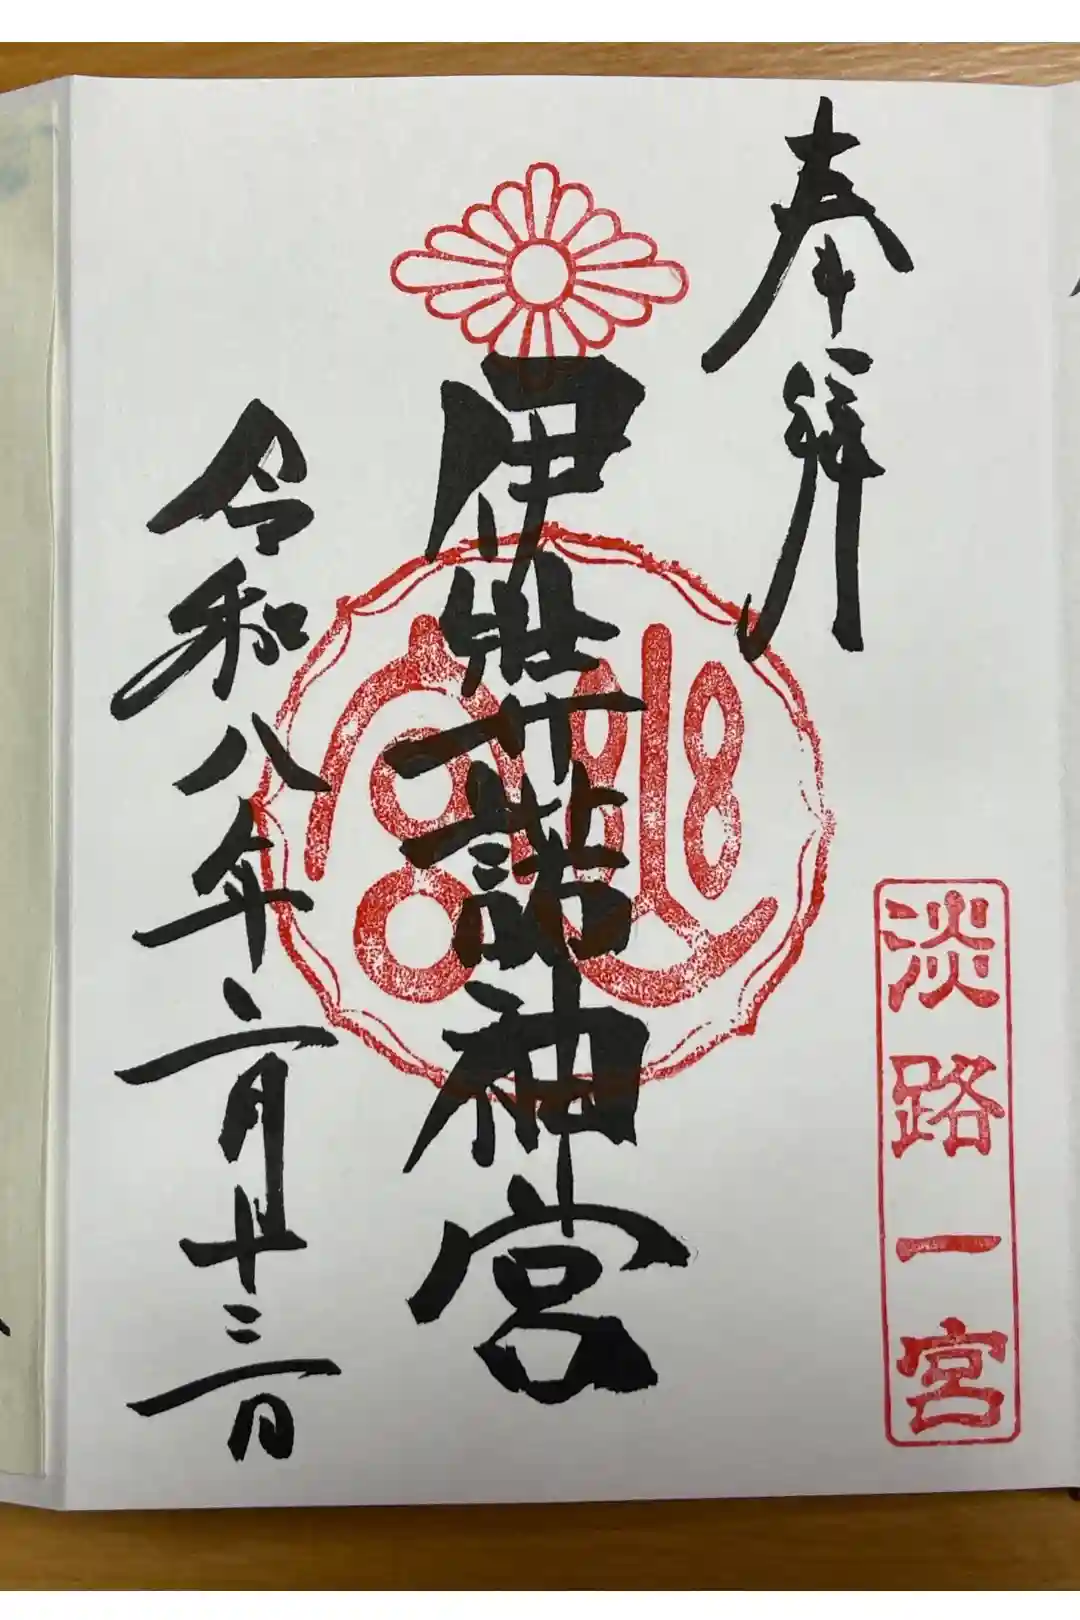 奉拝
淡路一宮
伊弉諾神宮
幽宮
令和八年二月十三日